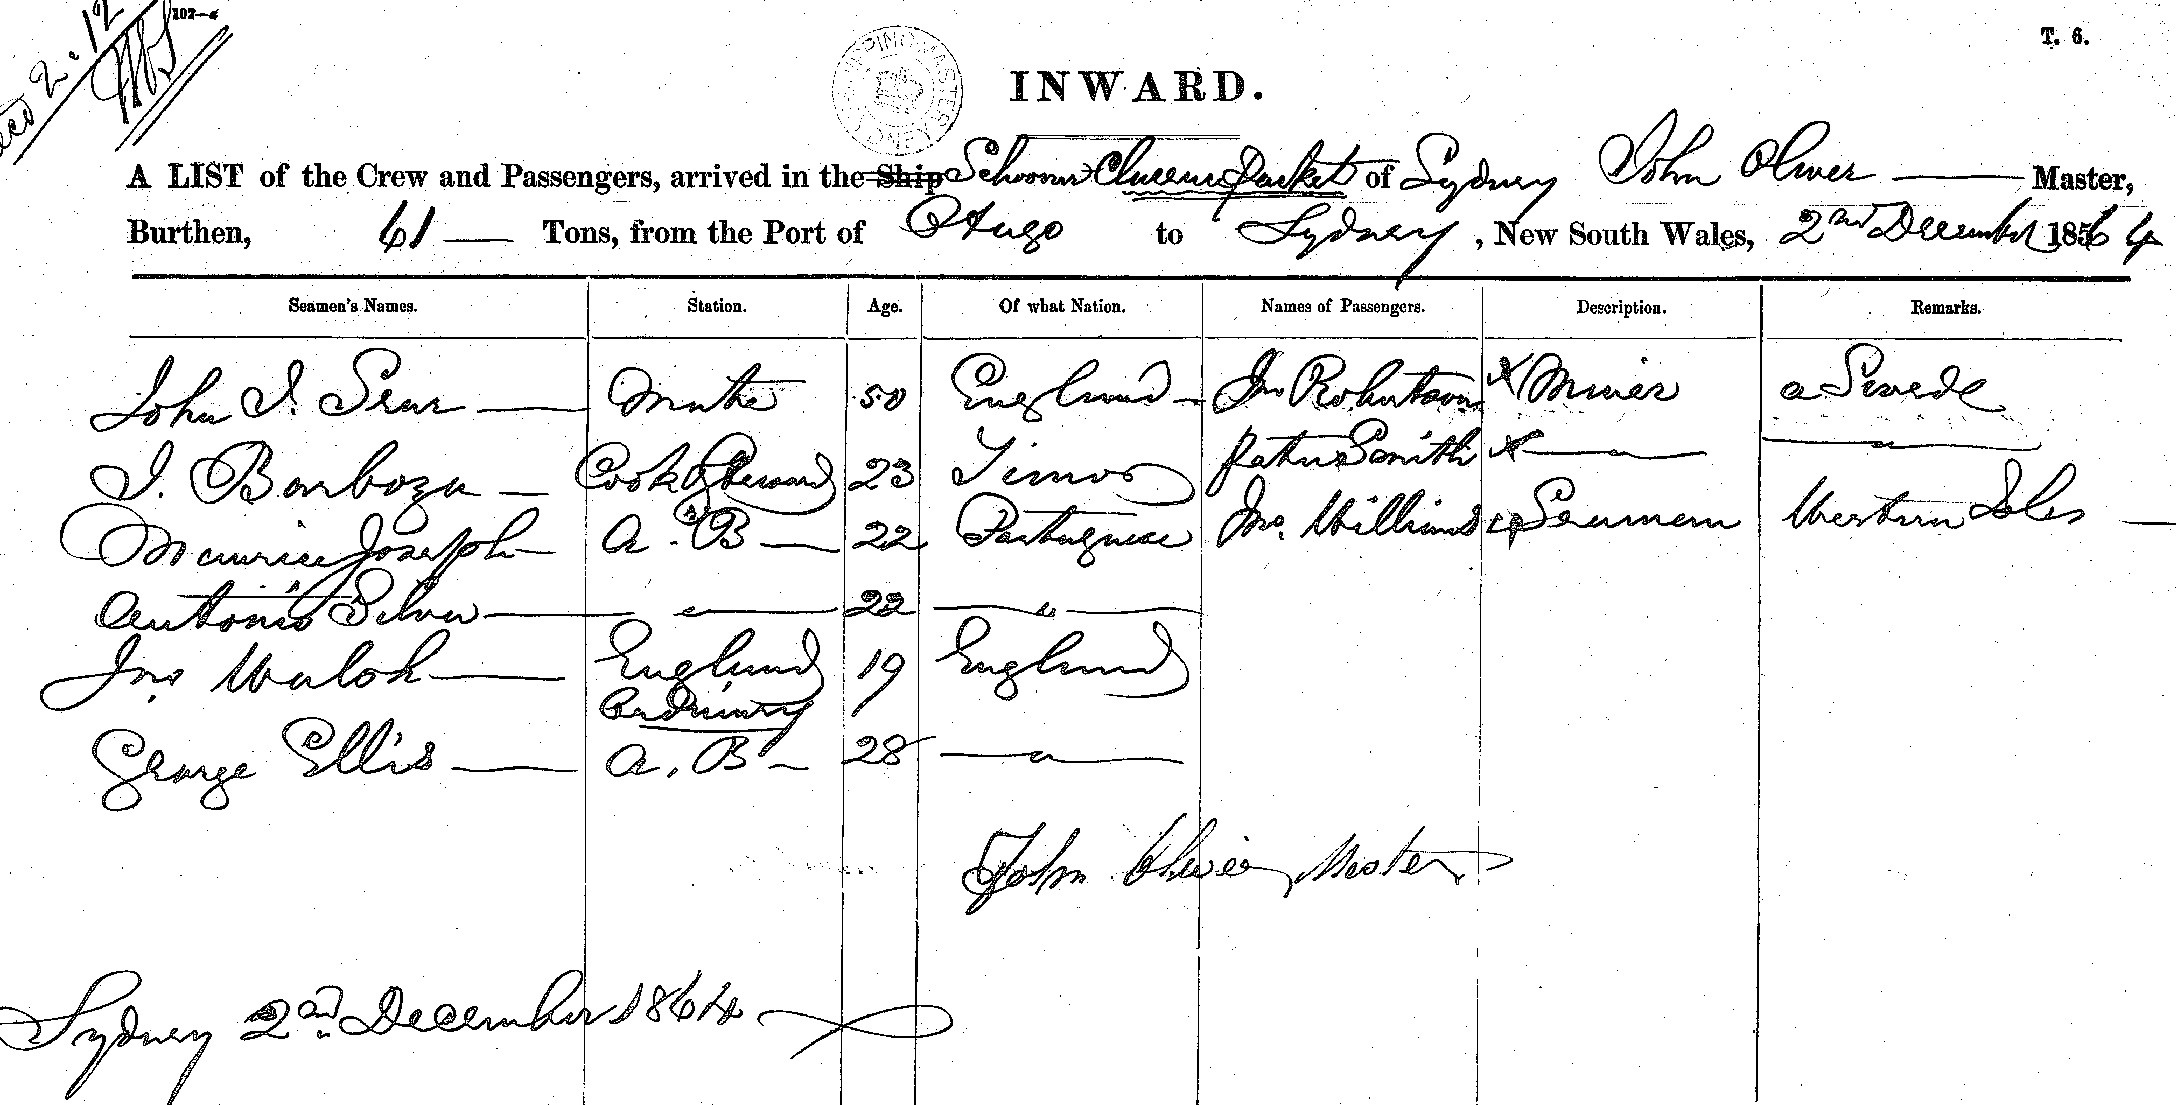 102—4
T. 6.
2. 12
INWARD.
A LIST of the Crew and Passengers, arrived in the Ship Schooner Clarence Packet of Sydney John Oliver Master,
Burthen, 61 Tons, from the Port of Otago to Sydney, New South Wales, 2nd December 1864
Seamen's Names. Station. Age. Of what Nation. Names of Passengers. Description. Remarks.
John I. Sear Mate 50 England Jno Robertson x Miner a Swede
I. Barboza Cook & Steward 23 Timor Peter Smith x " "
Maurice Joseph A. B 22 Portuguese Jno. Williams Seaman Western Isles
Antonio Silva " 22 "
Jno Walsh England 19 England
Ordinary
George Ellis A. B 28 "
John Oliver Master
Sydney 2nd December 1864